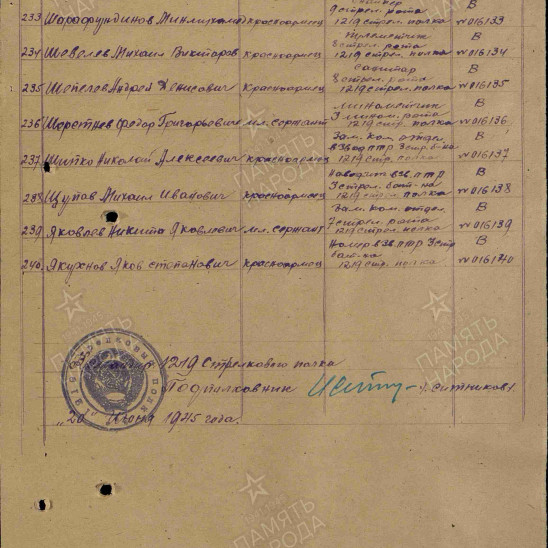 снайпер
9 стрел. рота
233 Шарафундинов Минлихамед красноармеец 1219 стрел. полка В № 016133
пулеметчик
8 стрел. рота
234 Шевелев Михаил Викторов красноармеец 1219 стр. полка В № 016134
санитар
8 стрел. рота
235 Шепелев Андрей Денисович Красноармеец 1219 стрел. полка В № 016135
минометчик
мином. рота
236 Шоротнев Федор Григорьевич мл. сержант 1219 стр. полка В № 016136
Зам. ком. отдел.
взвод птр 3 стр. б-на
237 Шитко Николай Алексеевич красноармеец 1219 стр. полка В № 016137
Наводчик взв. птр
3 стрел. бат-на
238 Щупав Михаил Иванович красноармеец 1219 стр. полка В № 016138
Зам. ком отдел.
7 стрел. рота
239 Яковлев Никита Яковлевич мл. сержант 1219 стрел. полка В № 016139
Номер взв. птр 3 стр
бат-на
240 Якурнов Яков степанович красноармеец 1219 стр. полка В № 016140
1219 Стрелкового полка
Подполковник Ситников
"20" Июня 1945 года.
ПАМЯТЬ НАРОДА
ПАМЯТЬ НАРОДА
ПАМЯТЬ НАРОДА